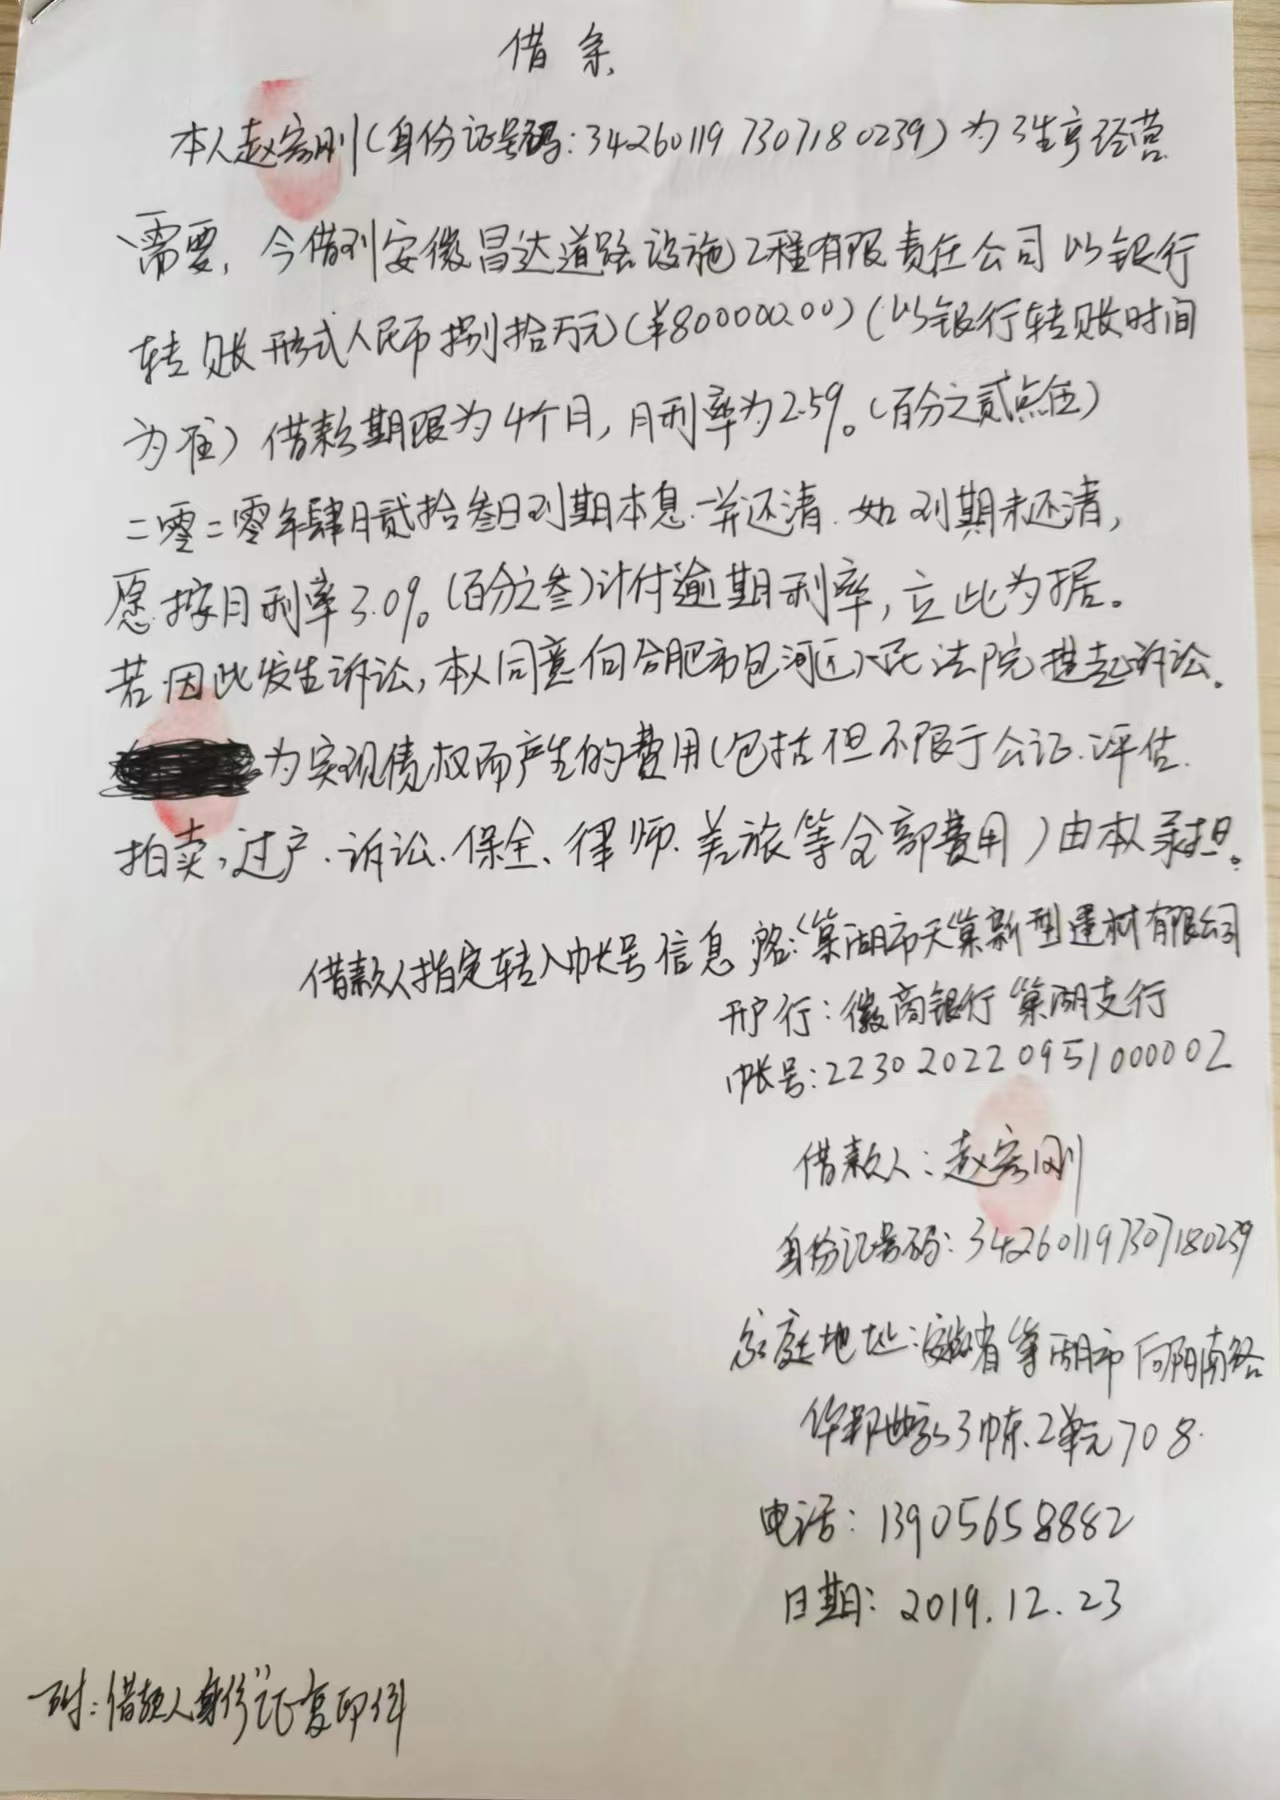 借条
本人赵宏刚(身份证号码:342601197307180239)为了生意经营
需要,今借到安徽昌达道路设施工程有限责任公司以银行
转账形式人民币捌拾万元(¥800000.00)(以银行转账时间
为准)借款期限为4个月,月利率为2.5%。(百分之贰点伍)
二零二零年肆月贰拾叁日到期本息一并还清.如到期未还清,
愿按月利率3.0%(百分之叁)计付逾期利率,立此为据。
若因此发生诉讼,本人同意向合肥市包河区人民法院提起诉讼。
为实现债权而产生的费用(包括但不限于公证.评估.
拍卖,过户.诉讼.保全、律师.差旅等全部费用)由本人承担。
借款人指定转入帐号信息 名:巢湖市天巢新型建材有限公司
开户行:徽商银行巢湖支行
帐号:223020220951000002
借款人:赵宏刚
身份证号码:342601197307180239
家庭地址:安徽省巢湖市向阳南路
华邦世家3幢2单元708
电话:13905658882
日期:2019.12.23
附:借款人身份证复印件